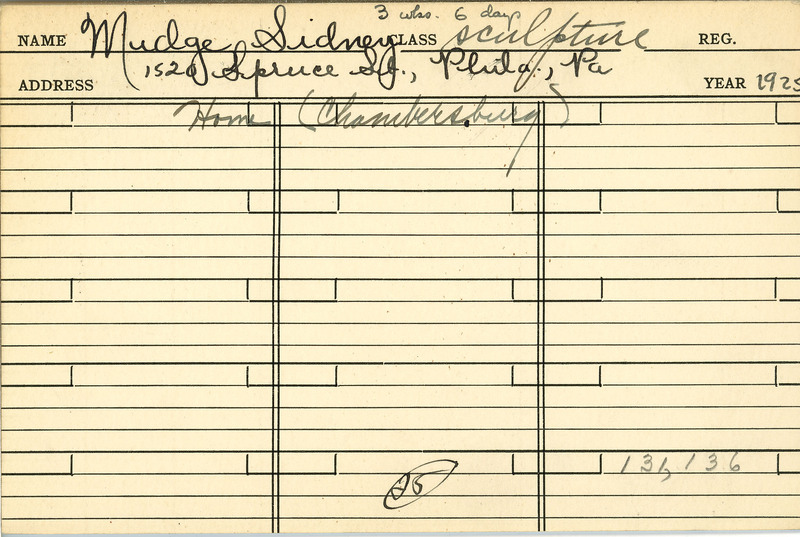 3 wks. 6 days
NAME Mudge Sidney CLASS sculpture REG.
ADDRESS 1520 Spruce St., Phila., Pa YEAR 1925
Home (Chambersburg)
131, 136
25